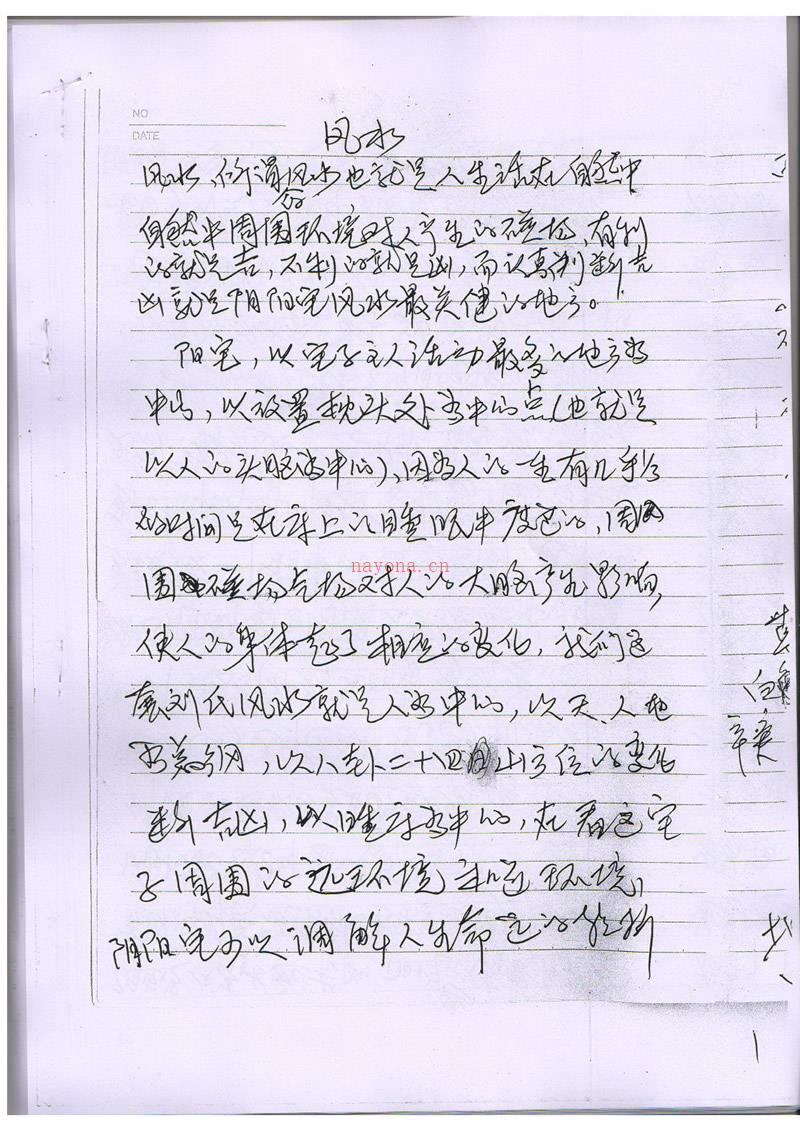 NO
DATE
风水
风水,所谓风水也就是人生活在自然中
自然中周围环境对人产生的磁场,有利
的就是吉,不利的就是凶,而认真判断吉
凶就是阴阳宅风水最关键的地方。
阳宅,以宅子主人活动最多的地方为
中心,以放置枕头处为中心点(也就是
以人的头脑为中心),因为人的一生有几乎
的时间是在床上的睡眠中度过的,周
围磁场气场对人的大脑产生影响
使人的身体起了相应的变化,我们这
刘氏风水就是人为中心,以天、人地
为 ,以八卦二十四山方位的变化
断吉凶,以睡床为中心,在看这宅
子周围的远环境和近环境,
阴阳宅可以调解人生命运的
nayona.cn
1